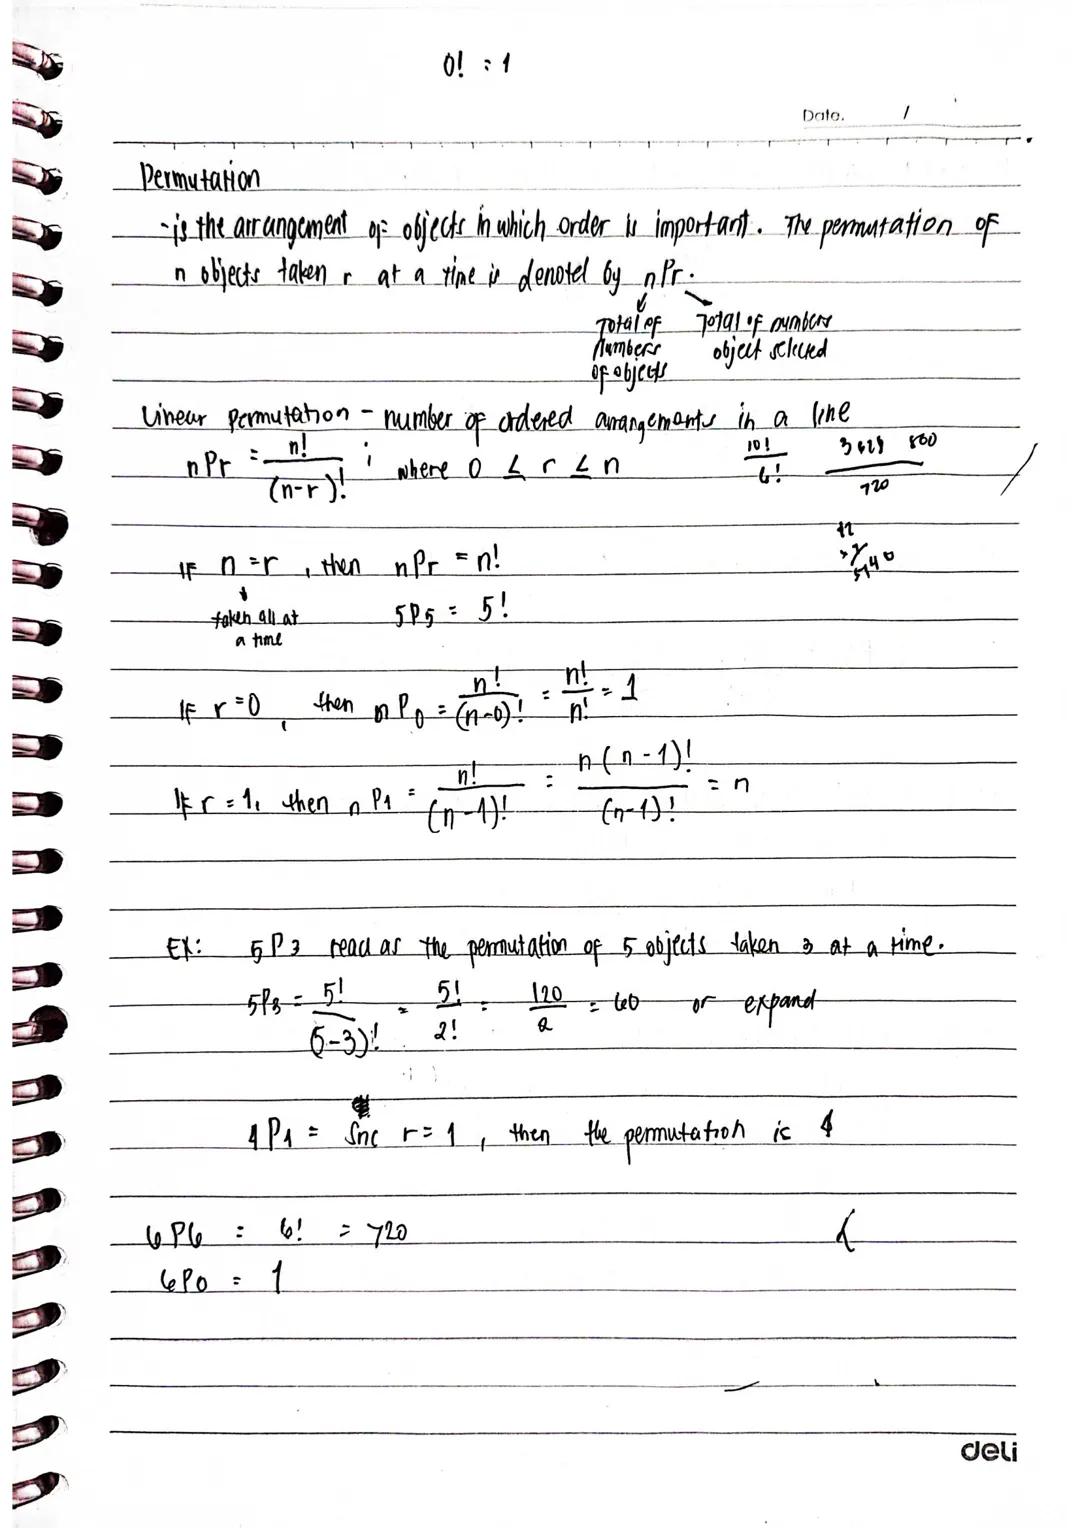 0! = 1
Date. /
Permutation
- is the arrangement of objects in which order is important. The permutation of
n objects taken r at a time is denoted by nPr.
Total of numbers of objects
Total of numbers object selected
Linear permutation - number of ordered arrangements in a line
nPr = n!/(n-r)! ; where 0 ≤ r ≤ n
10!/6! 3628 800/720
5140
If n = r, then nPr = n!
taken all at a time
5P5 = 5!
If r = 0, then nP0 = n!/(n-0)! = n!/n! = 1
If r = 1, then nP1 = n!/(n-1)! = n(n-1)!/(n-1)! = n
EX: 5P3 read as the permutation of 5 objects taken 3 at a time.
5P3 = 5!/(5-3)! = 5!/2! = 120/2 = 60 or expand
4P1 = Snc r = 1, then the permutation is 4
6P6 = 6! = 720
6P0 = 1
deli